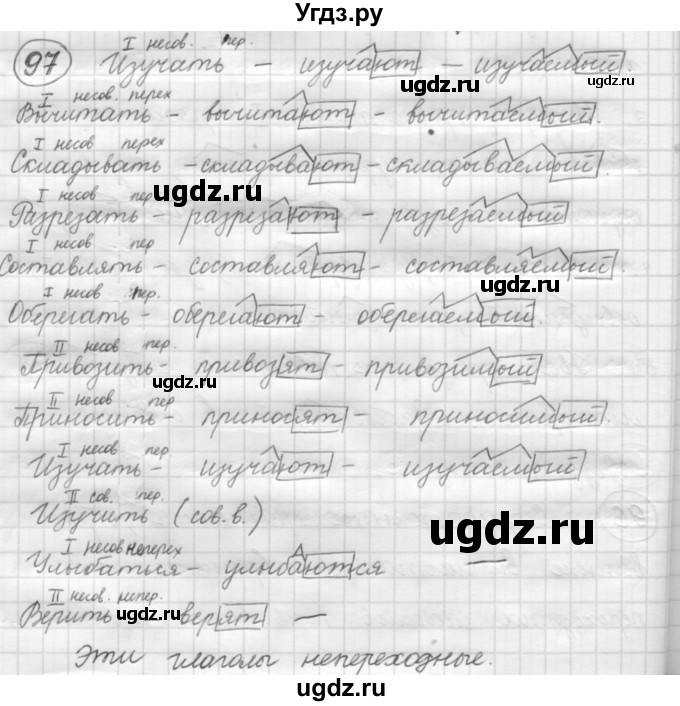 Угдз.ру
97 I несов. пер.
Изучать - изучают - изучаемый.
I несов. перех
Вычитать - вычитают - вычитаемый.
I несов перех
Складывать - складывают - складываемый.
I несов. пер
Разрезать - разрезают - разрезаемый
I несов. пер
Составлять - составляют - составляемый.
I несов пер.
Оберегать - оберегают - оберегаемый.
II несов пер
Привозить - привозят - привозимый
II несов. пер
Приносить - приносят - приносимый
I несов. пер.
Изучать - изучают - изучаемый
II сов. пер.
Изучить (сов.в.)
I несов неперех
Улыбаться - улыбаются —
II несов. непер.
Верить верят —
Эти глаголы непереходные.
ugdz.ru
ugdz.ru
ugdz.ru
ugdz.ru
ugdz.ru
ugdz.ru
ugdz.ru
ugdz.ru
ugdz.ru
ugdz.ru